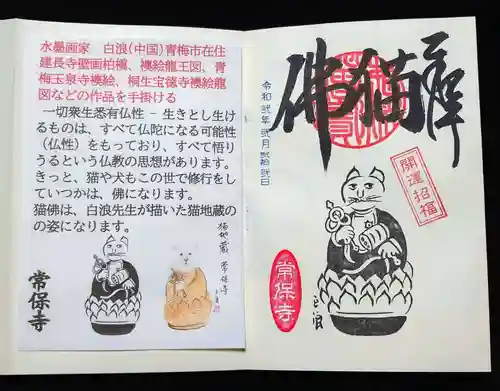 水墨画家　白浪（中国）青梅市在住
建長寺壁画柏槇、襖絵龍王図、青
梅玉泉寺襖絵、桐生宝徳寺襖絵龍
図などの作品を手掛ける
一切衆生悉有仏性 − 生きとし生け
るものは、すべて仏陀になる可能性
（仏性）をもっており、すべて悟り
うるという仏教の思想があります。
きっと、猫や犬もこの世で修行をし
ていつかは、佛になります。
猫佛は、白浪先生が描いた猫地蔵の
の姿になります。
常保寺
猫地蔵 常保寺
猫
佛
令和弐年弐月弐拾弐日
開運招福
常保寺
白浪